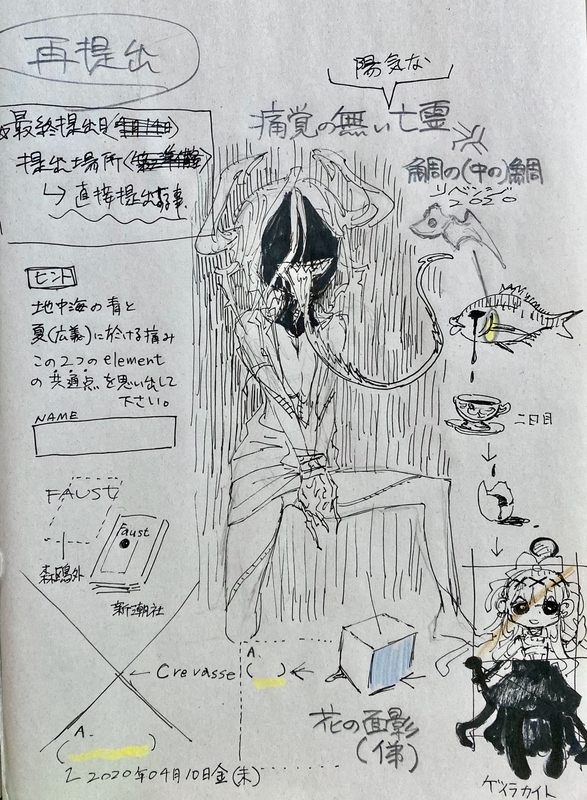 再提出
最終提出日
提出場所
↳ 直接提出する事.
ヒント
地中海の青と
夏(広義)に於ける痛み
この2つのelement
の共通点を思い出して
下さい。
NAME
FAUST
Faust
森鴎外
新潮社
← Crevasse
A.
( )
2020年04月10日金(未)
陽気な
痛覚の無い亡霊
鯛の(中の)鯛
リベンジ
2020
二日目
A.
( ) ←
花の面影
ゲイラカイト